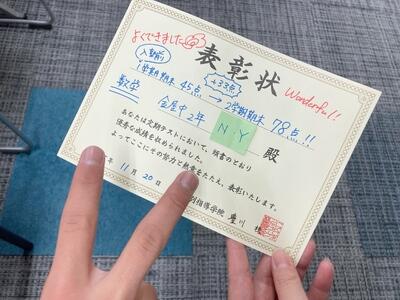 よくできました
表彰状
Wonderful!!
入塾前
+33点
1学期期末 45点 → 2学期期末 78点!!
数学
金屋中2年 N・Y 殿
あなたは定期テストにおいて、頭書のとおり
優秀な成績を収められました。
よってここにその努力と熱意をたたえ、表彰いたします。
年 11月 20
別指導学院 豊川